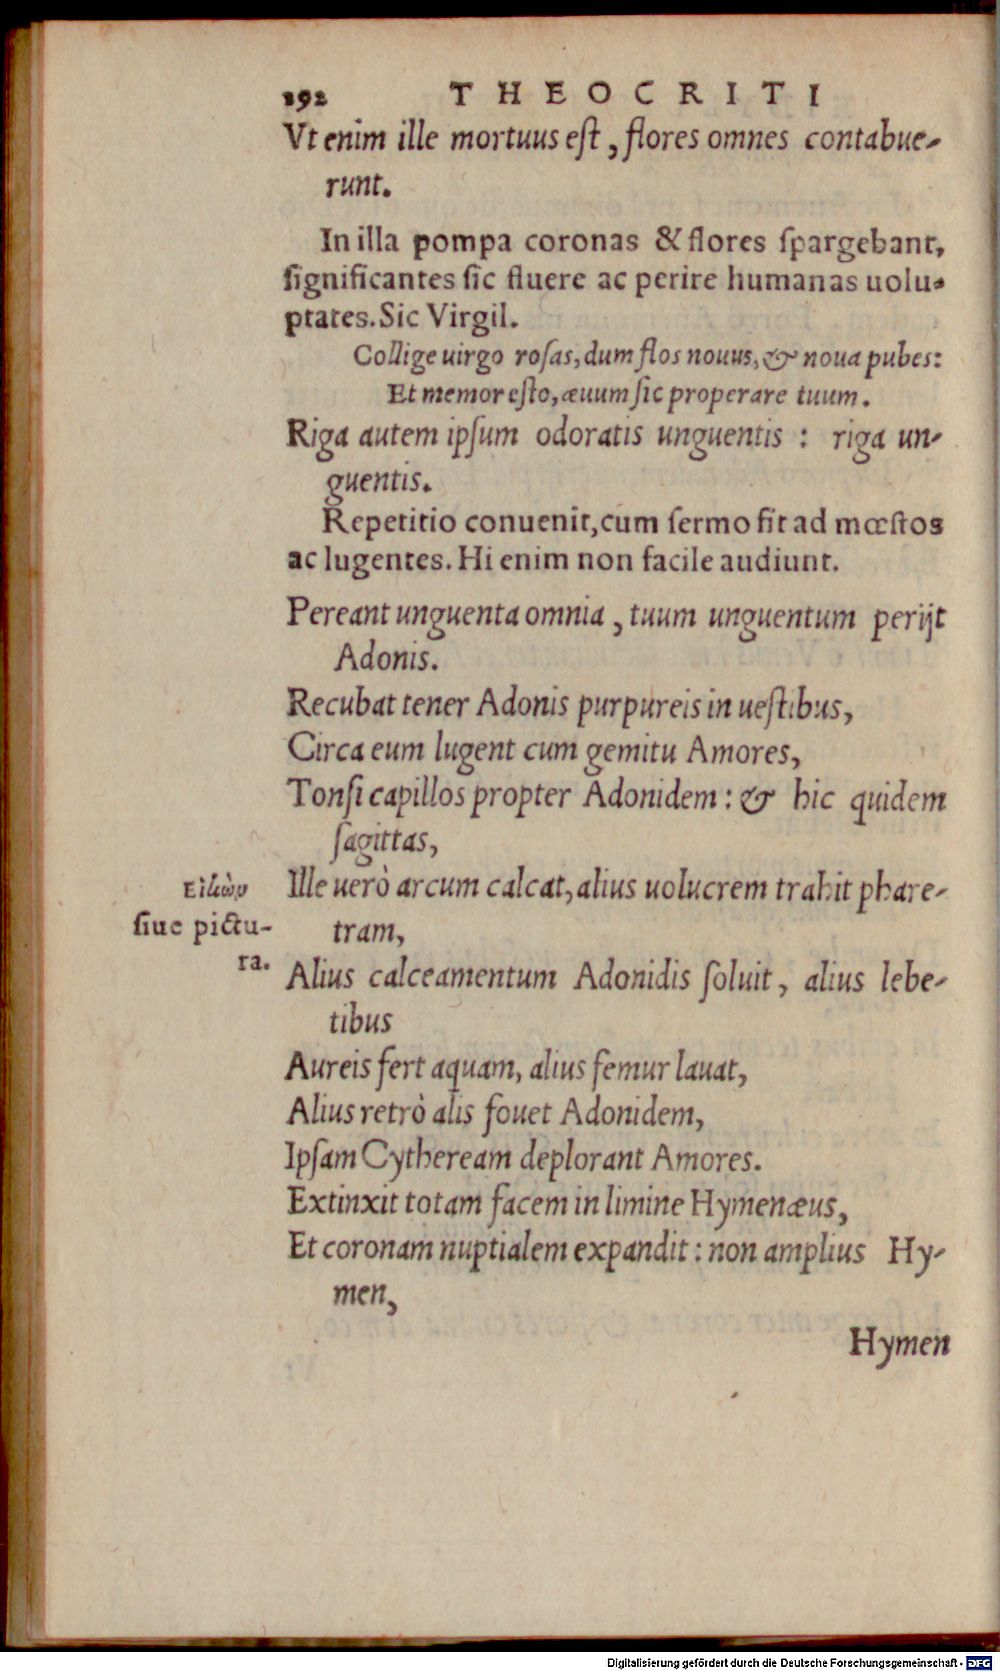 192 THEOCRITI
Vt enim ille mortuus eſt, flores omnes contabue-
runt.
In illa pompa coronas & flores ſpargebant,
ſignificantes ſic fluere ac perire humanas uolu-
ptates. Sic Virgil.
Collige uirgo roſas, dum flos nouus, & noua pubes:
Et memor eſto, æuum ſic properare tuum.
Riga autem ipſum odoratis unguentis : riga un-
guentis.
Repetitio conuenit, cum ſermo fit ad mœſtos
ac lugentes. Hi enim non facile audiunt.
Pereant unguenta omnia, tuum unguentum perijt
Adonis.
Recubat tener Adonis purpureis in ueſtibus,
Circa eum lugent cum gemitu Amores,
Tonſi capillos propter Adonidem : & hic quidem
ſagittas,
Ille uerò arcum calcat, alius uolucrem trahit phare-
tram,
Εἰκὼν
ſiue pictu-
ra.
Alius calceamentum Adonidis ſoluit, alius lebe-
tibus
Aureis fert aquam, alius femur lauat,
Alius retrò alis fouet Adonidem,
Ipſam Cytheream deplorant Amores.
Extinxit totam facem in limine Hymenæus,
Et coronam nuptialem expandit : non amplius Hy-
men,
Hymen
Digitalisierung gefördert durch die Deutsche Forschungsgemeinschaft - DFG